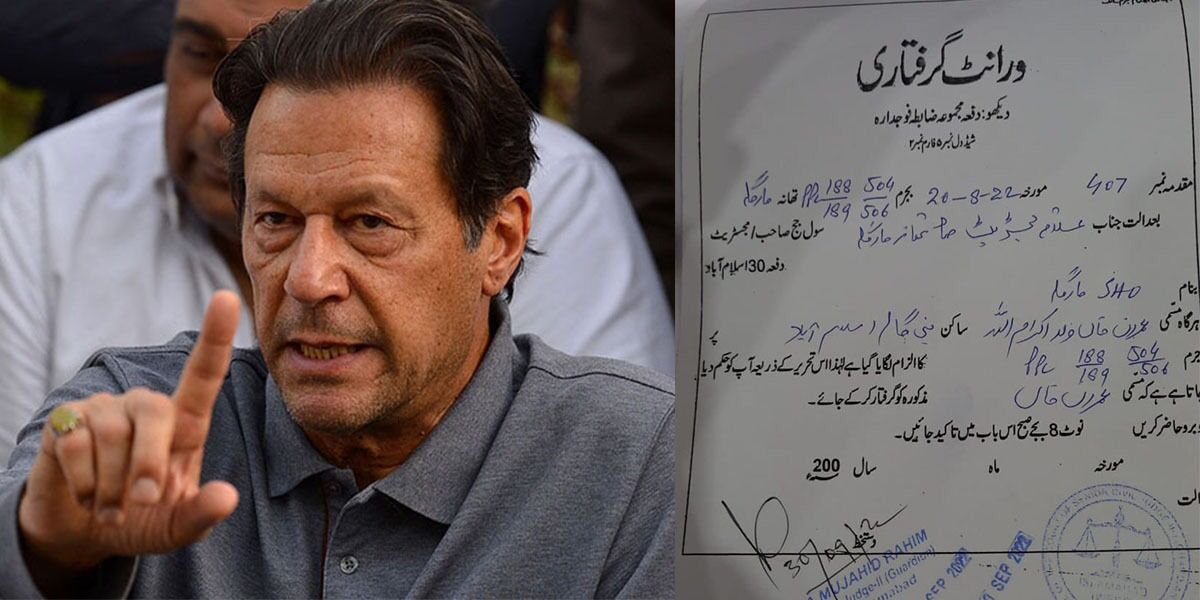 ورانٹ گرفتاری
دیکھو: دفعہ مجموعہ ضابطہ فوجدارہ
شیڈول نمبر ۵ فارم نمبر ۲
مقدمہ نمبر 407 مورخہ 20-8-22 بجرم PPC 188/189 504/506 تھانہ مارگلہ
بعدالت جناب سول جج صاحب / مجسٹریٹ
دفعہ 30 اسلام آباد
بنام SHO مارگلہ
ہرگاہ مسمی عمران خان ولد اکرام اللہ ساکن بنی گالہ اسلام آباد پر
جرم PPC 188/189 504/506 کا الزام لگایا گیا ہے لہٰذا اس تحریر کے ذریعہ آپ کو حکم دیا
جاتا ہے ہے کہ مسمی عمران خان مذکورہ کو گرفتار کر کے جائے۔
روبرو حاضر کریں نوٹ 8 بجے صبح اس باب میں تاکید جائیں۔
مورخہ ماہ سال 200ء
دستخط
30/09/
MUJAHID RAHIM
Judge-II (Guardian)
SEP 2022
SEP 2022